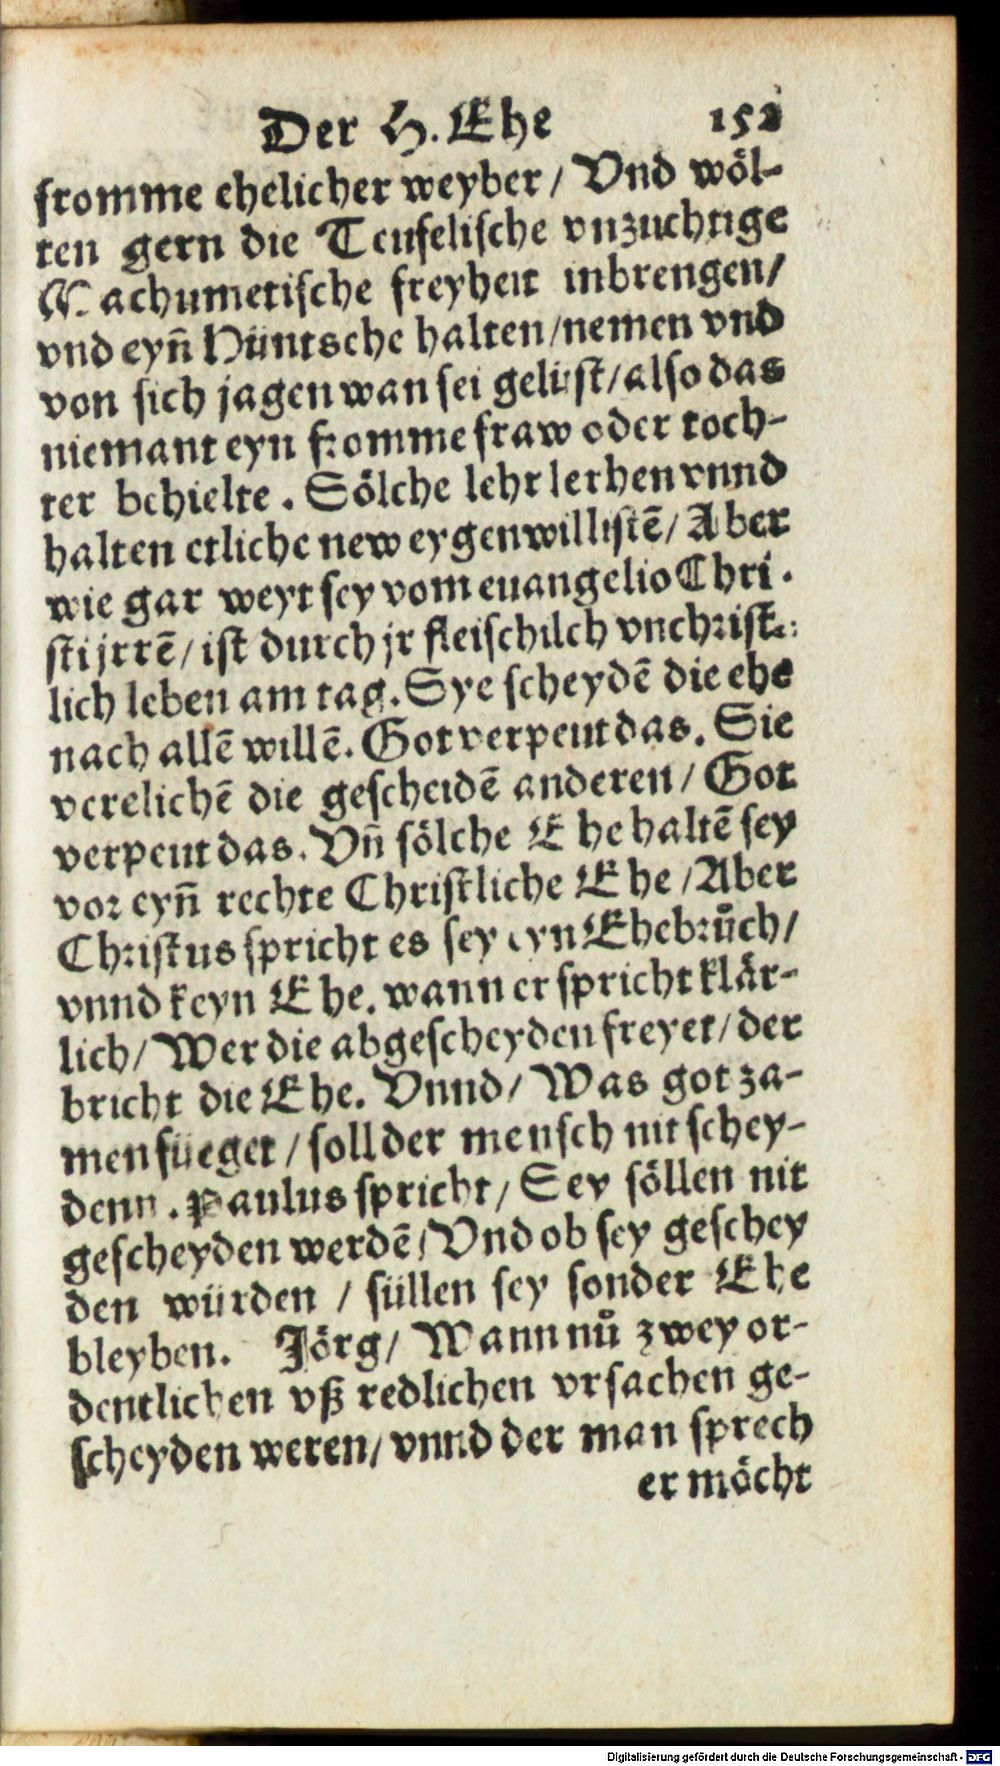 Der H. Ehe 152
fromme ehelicher weyber / Vnd wöl-
ten gern die Teufelische vnzuchtige
Machumetische freyheit inbrengen/
vnd eyn̄ Hüntsche halten/nemen vnd
von sich jagen wan sei gelüst/also das
niemant eyn fromme fraw oder toch-
ter behielte. Sölche lehr lerhen vnnd
halten etliche new eygenwillistē/ Aber
wie gar weyt sey vom euangelio Chri.
sti jrrē/ist durch jr fleischilch vnchrist-
lich leben am tag. Sye scheydē die ehe
nach allē willē. Got verpeut das. Sie
verelichē die gescheidē anderen/ Got
verpeut das. Vn̄ sölche Ehe haltē sey
vor eyn̄ rechte Christliche Ehe /Aber
Christus spricht es sey eyn Ehebrůch/
vnnd keyn Ehe. wann er spricht klär-
lich/ Wer die abgescheyden freyet/der
bricht die Ehe. Vnnd/ Was got za-
men füeget /soll der mensch nit schey-
denn. Paulus spricht/ Sey söllen nit
gescheyden werdē/Vnd ob sey geschey
den würden / süllen sey sonder Ehe
bleyben. Jörg/ Wann nů zwey or-
dentlichen vß redlichen vrsachen ge-
scheyden weren/vnnd der man sprech
er möcht
Digitalisierung gefördert durch die Deutsche Forschungsgemeinschaft - DFG